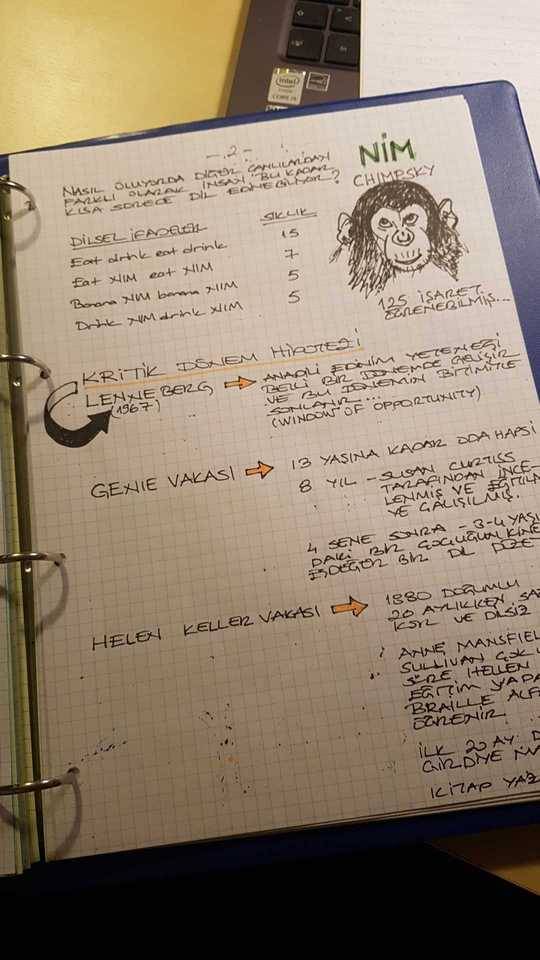 intel
CORE i5
- 2 -
NASIL OLUYORDA DİĞER CANLILARDAN
FARKLI OLARAK İNSAN BU KADAR
KISA SÜREÇE DİL EDİNEBİLİYOR?
NIM
CHIMPSKY
DİLSEL İFADELER SIKLIK
Eat drink eat drink 15
Eat NIM eat NIM 7
Banana NIM banana NIM 5
Drink NIM drink NIM 5
125 İŞARET
ÖĞRENEBİLMİŞ...
KRİTİK DÖNEM HİPOTEZİ
LENNEBERG
(1967)
ANADİLİ EDİNİM YETENEĞİ
BELLİ BİR DÖNEMDE GELİŞİR
VE BU DÖNEMİN BİTİMİYLE
SONLANIR...
(WINDOW OF OPPORTUNITY)
GENIE VAKASI
13 YAŞINA KADAR ODA HAPSİ
8 YIL - SUSAN CURTISS
TARAFINDAN İNCE-
LENMİŞ VE EĞİTİLM
VE ÇALIŞILMIŞ.
4 SENE SONRA - 3-4 YAŞI
DAKİ BİR ÇOCUĞUN KİNE
EŞDEĞER BİR DİL DÜZE
HELEN KELLER VAKASI
1880 DOĞUMLU
20 AYLIKKEN SA
KÖR VE DİLSİZ
ANNE MANSFIEL
SULLIVAN ÇOK U
SÜRE HELLEN
EĞİTİM YAPA
BRAILLE ALF
ÖĞRENİR
İLK 20 AY D
GİRDİYE MA
KİTAP YAZ